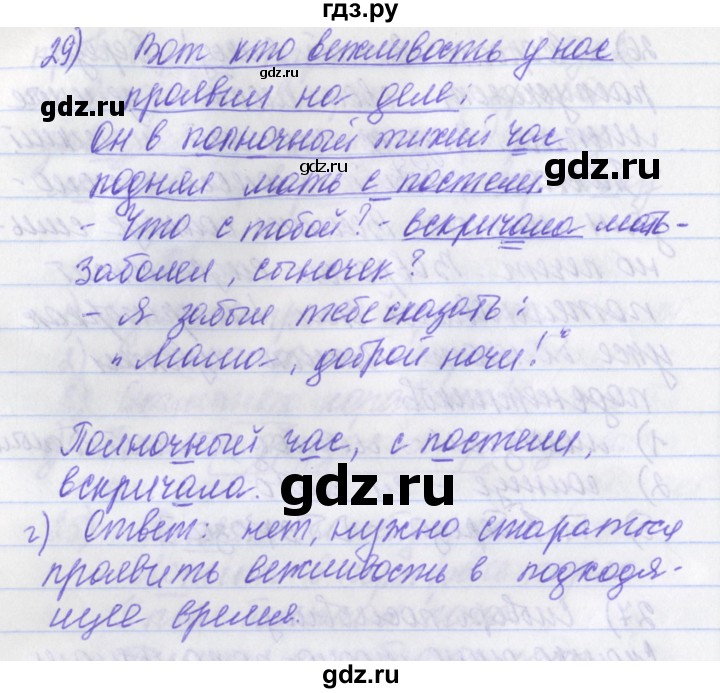 гдз.ру
29) Вот кто вежливость у нас
gdz.ru
проявил на деле:
gdz.ru
gdz.ru
Он в полночный тихий час
поднял мать с постели.
- Что с тобой? - вскричала мать-
Заболел, сыночек?
- Я забыл тебе сказать:
"Мама, доброй ночи!"
Полночный час, с постели,
вскричала.
gdz.ru
г) Ответ: нет, нужно стараться
проявить вежливость в подходя-
щее время.
gdz.ru